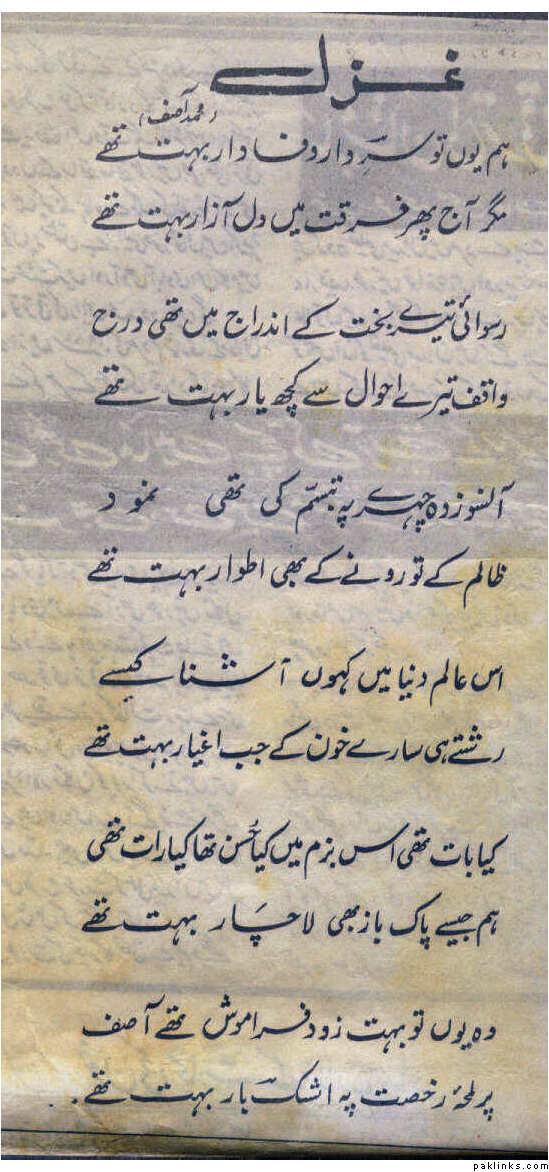 غزل
(محمد آصف)
ہم یوں تو سرِ دار وفادار بہت تھے
مگر آج پھر فرقت میں دل آزار بہت تھے
رسوائی تیرے بخت کے اندراج میں تھی درج
واقف تیرے احوال سے کچھ یار بہت تھے
آنسو زدہ چہرے پہ تبسّم کی تھی نمود
ظالم کے تو رونے کے بھی اطوار بہت تھے
اس عالم دنیا میں کہوں آشنا کیسے
رشتے ہی سارے خون کے جب اغیار بہت تھے
کیا بات تھی اس بزم میں کیا حُسن تھا کیا رات تھی
ہم جیسے پاک باز بھی لاچار بہت تھے
وہ یوں تو بہت زود فراموش تھے آصف
پر لمحۂ رخصت پہ اشک بار بہت تھے..
paklinks.com